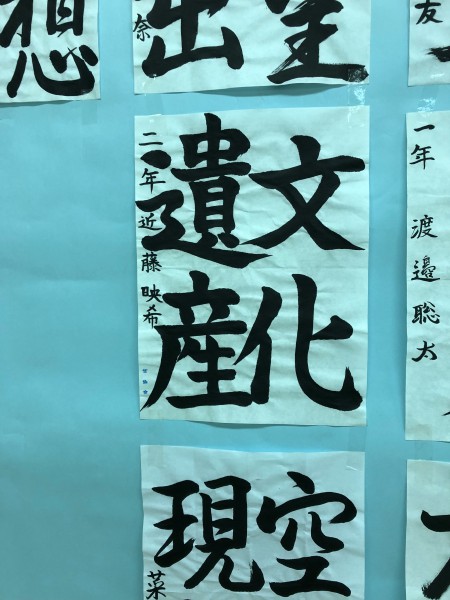 想
出
奈
友
文化
遺産
二年 近藤映希
一年 渡邉聡太
空
現
菜